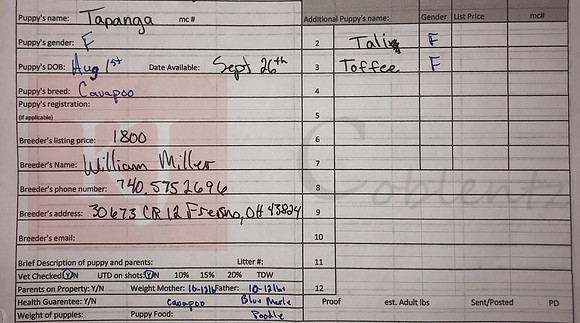 Puppy's name: Tapanga mc# Additional Puppy's name: Gender List Price mc#
Puppy's gender: F 2 Tali F
Puppy's DOB: Aug 1st Date Available: Sept 26th 3 Toffee F
Puppy's breed: Cavapoo 4
Puppy's registration: 
(If applicable) 5
Breeder's listing price: 1800 6
Breeder's Name: William Miller 7
Breeder's phone number: 740.575 2696 8
Breeder's address: 30673 CR 12 Fresno, OH 43824 9
Coblentz
Breeder's email: 10
Brief Description of puppy and parents: Litter #: 11
Vet Checked Y/N UTD on shots: Y/N 10% 15% 20% TDW
Parents on Property: Y/N Weight Mother: 10-12lbs Father: 10-12lbs 12
Health Guarentee: Y/N Cavapoo Blue Merle Proof est. Adult lbs Sent/Posted PD
Weight of puppies: Puppy Food: Poodle